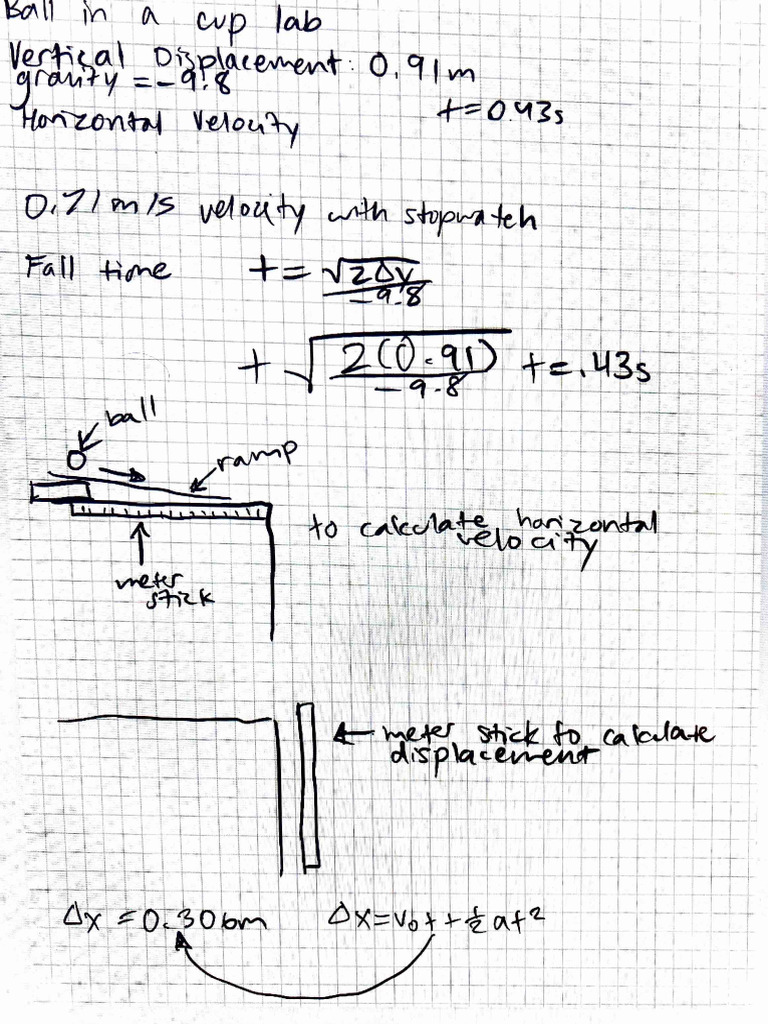 Ball in a cup lab
Vertical Displacement: 0.91m
gravity = -9.8
t=0.43s
Horizontal Velocity
0.71m/s velocity with stopwatch
Fall time t= √2Δy / -9.8
t √2(0.91) / -9.8 t=.43s
ball
ramp
to calculate horizontal
velocity
meter
stick
← meter stick to calculate
displacement
Δx = 0.306m Δx=v₀t+½at²